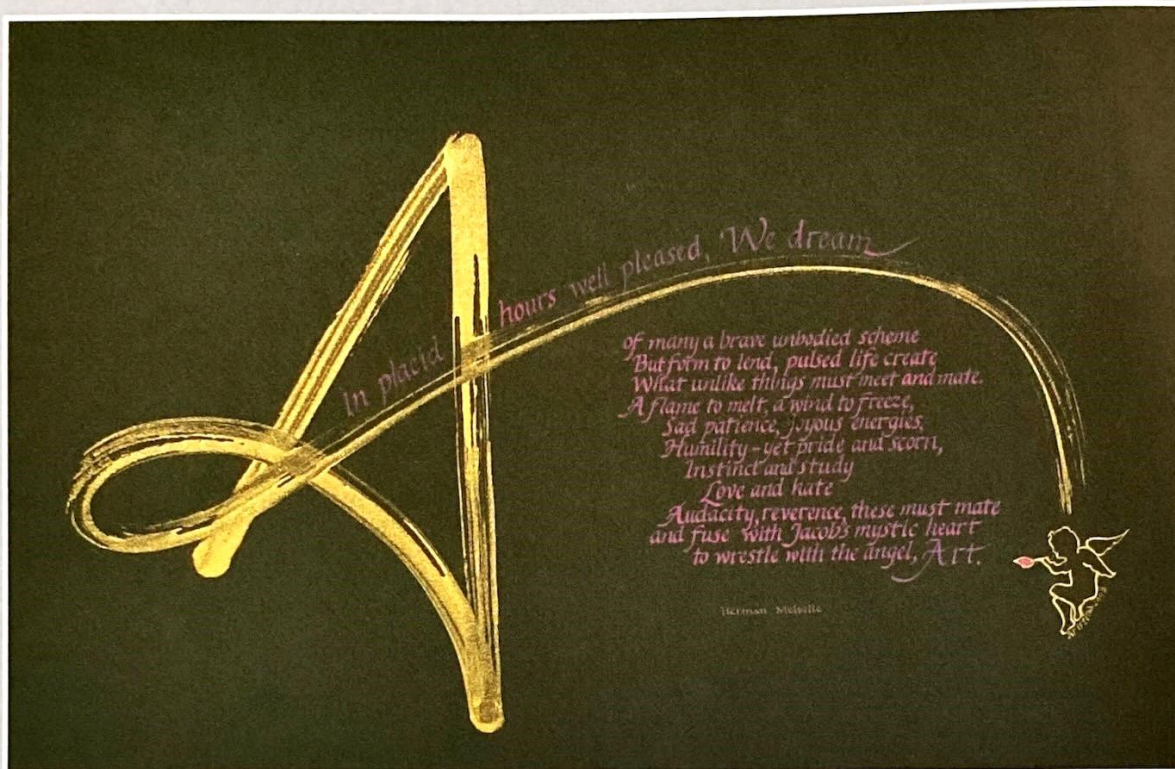 A
In placid hours well pleased, We dream
of many a brave unbodied scheme
But form to lend, pulsed life create
What unlike things must meet and mate.
A flame to melt, a wind to freeze,
Sad patience, joyous energies,
Humility-yet pride and scorn,
Instinct and study
Love and hate
Audacity, reverence, these must mate
and fuse with Jacob's mystic heart
to wrestle with the angel, Art.
Herman Melville